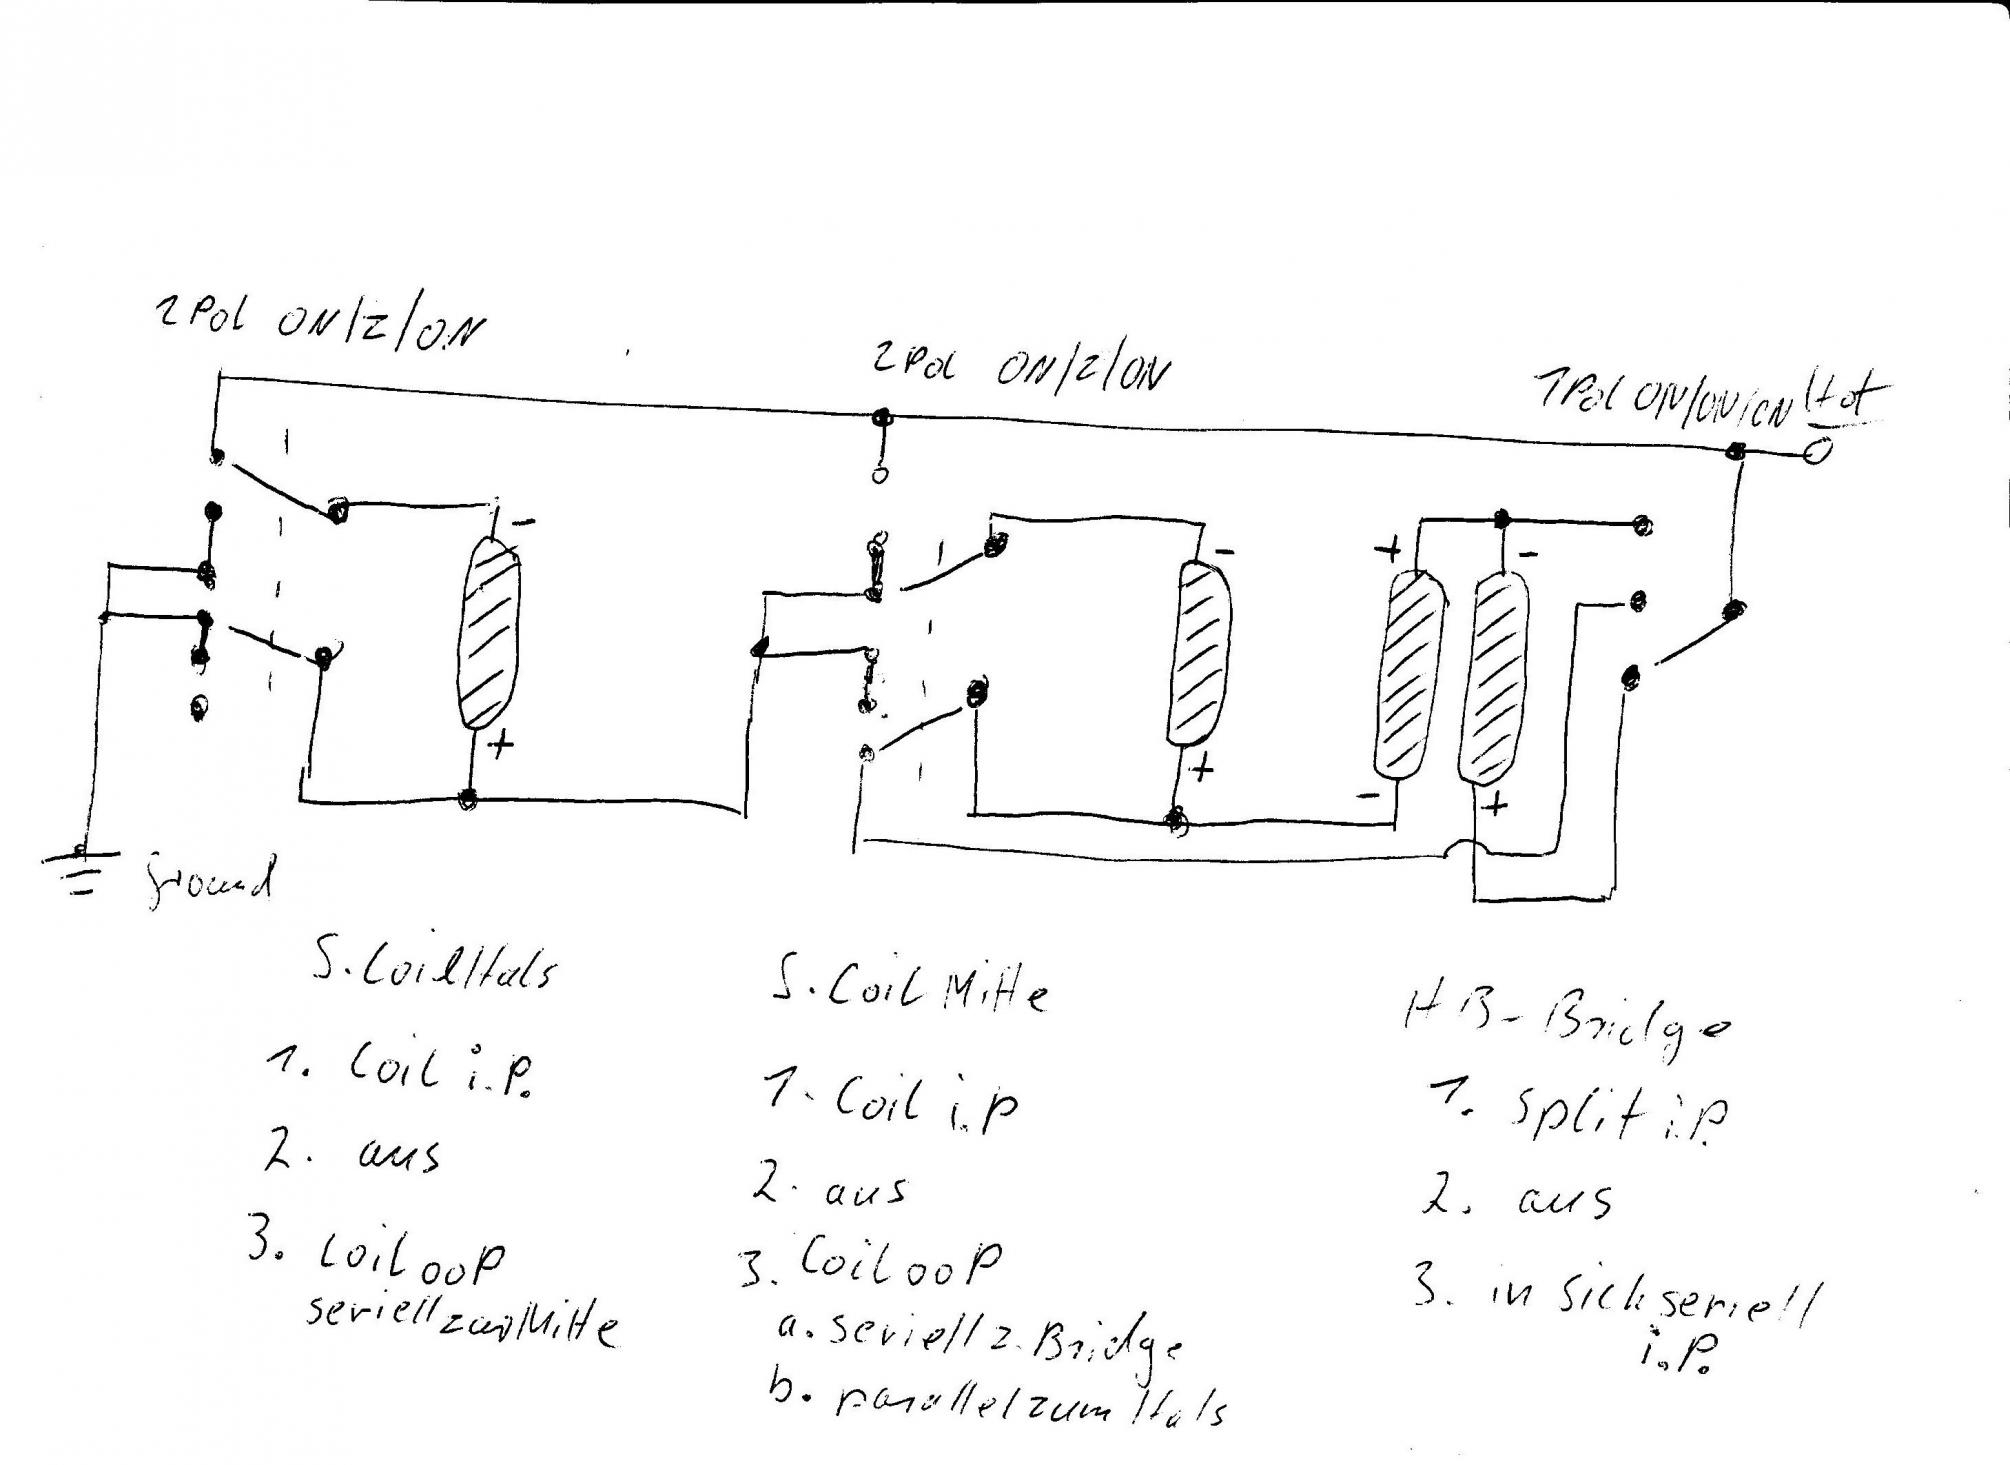 2Pol ON/Z/ON
2Pol ON/Z/ON
1Pol ON/ON/ON Hot
-
+
-
+
+
-
-
+
Ground
S. Coil Hals
1. Coil i.P.
2. aus
3. Coil ooP
seriell zur Mitte
S. Coil Mitte
1. Coil i.P
2. aus
3. Coil ooP
a. seriell z. Bridge
b. parallel zum Hals
HB-Bridge
1. split i.P.
2. aus
3. in sich seriell
i.P.